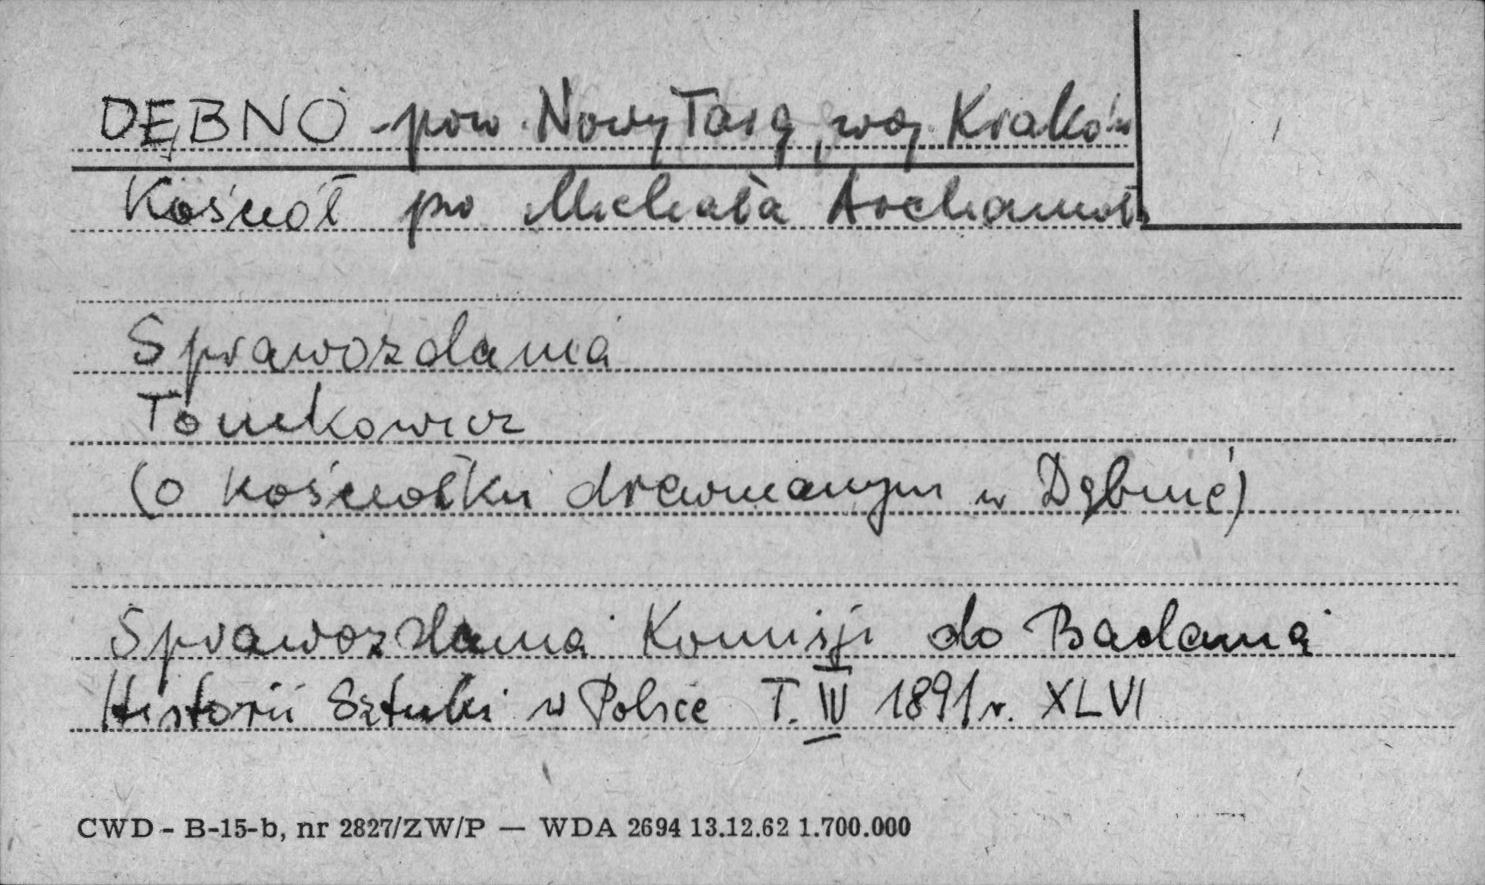 DĘBNO - pow. Nowy Targ, woj. Kraków
Kościół pw Michała Archanioła
Sprawozdania
Tomkowicz
(o kościółku drewnianym w Dębnie)
Sprawozdania Komisji do Badania
Historii Sztuki w Polsce T. IV 1891 r. XLVI
CWD - B-15-b, nr 2827/ZW/P — WDA 2694 13.12.62 1.700.000